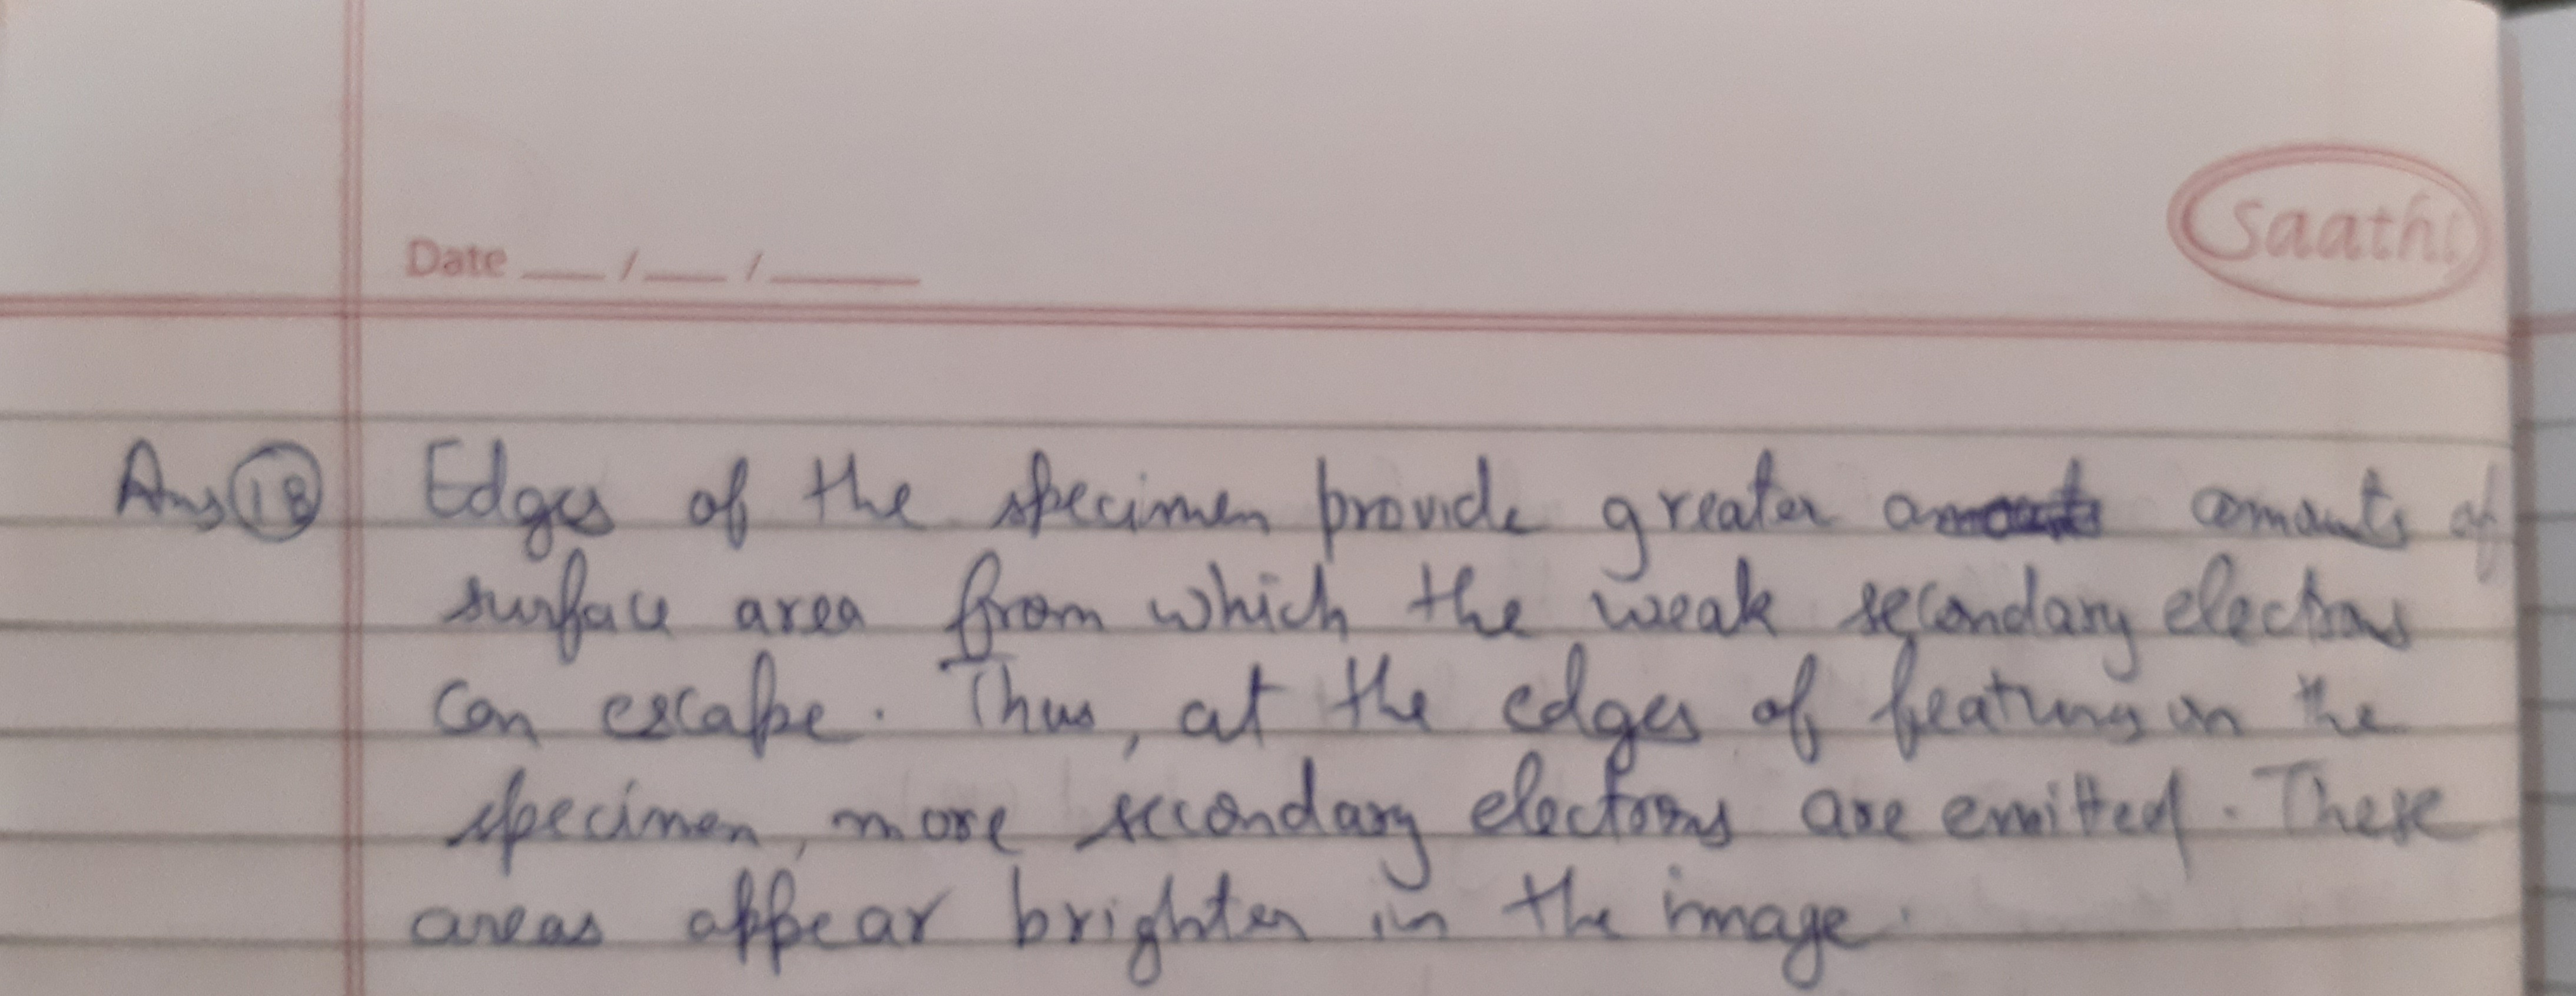 saathi
Date __/__/____
Ans 18 Edges of the specimen provide greater amounts of
surface area from which the weak secondary electrons
can escape. Thus, at the edges of features in the
specimen, more secondary electrons are emitted. These
areas appear brighter in the image.